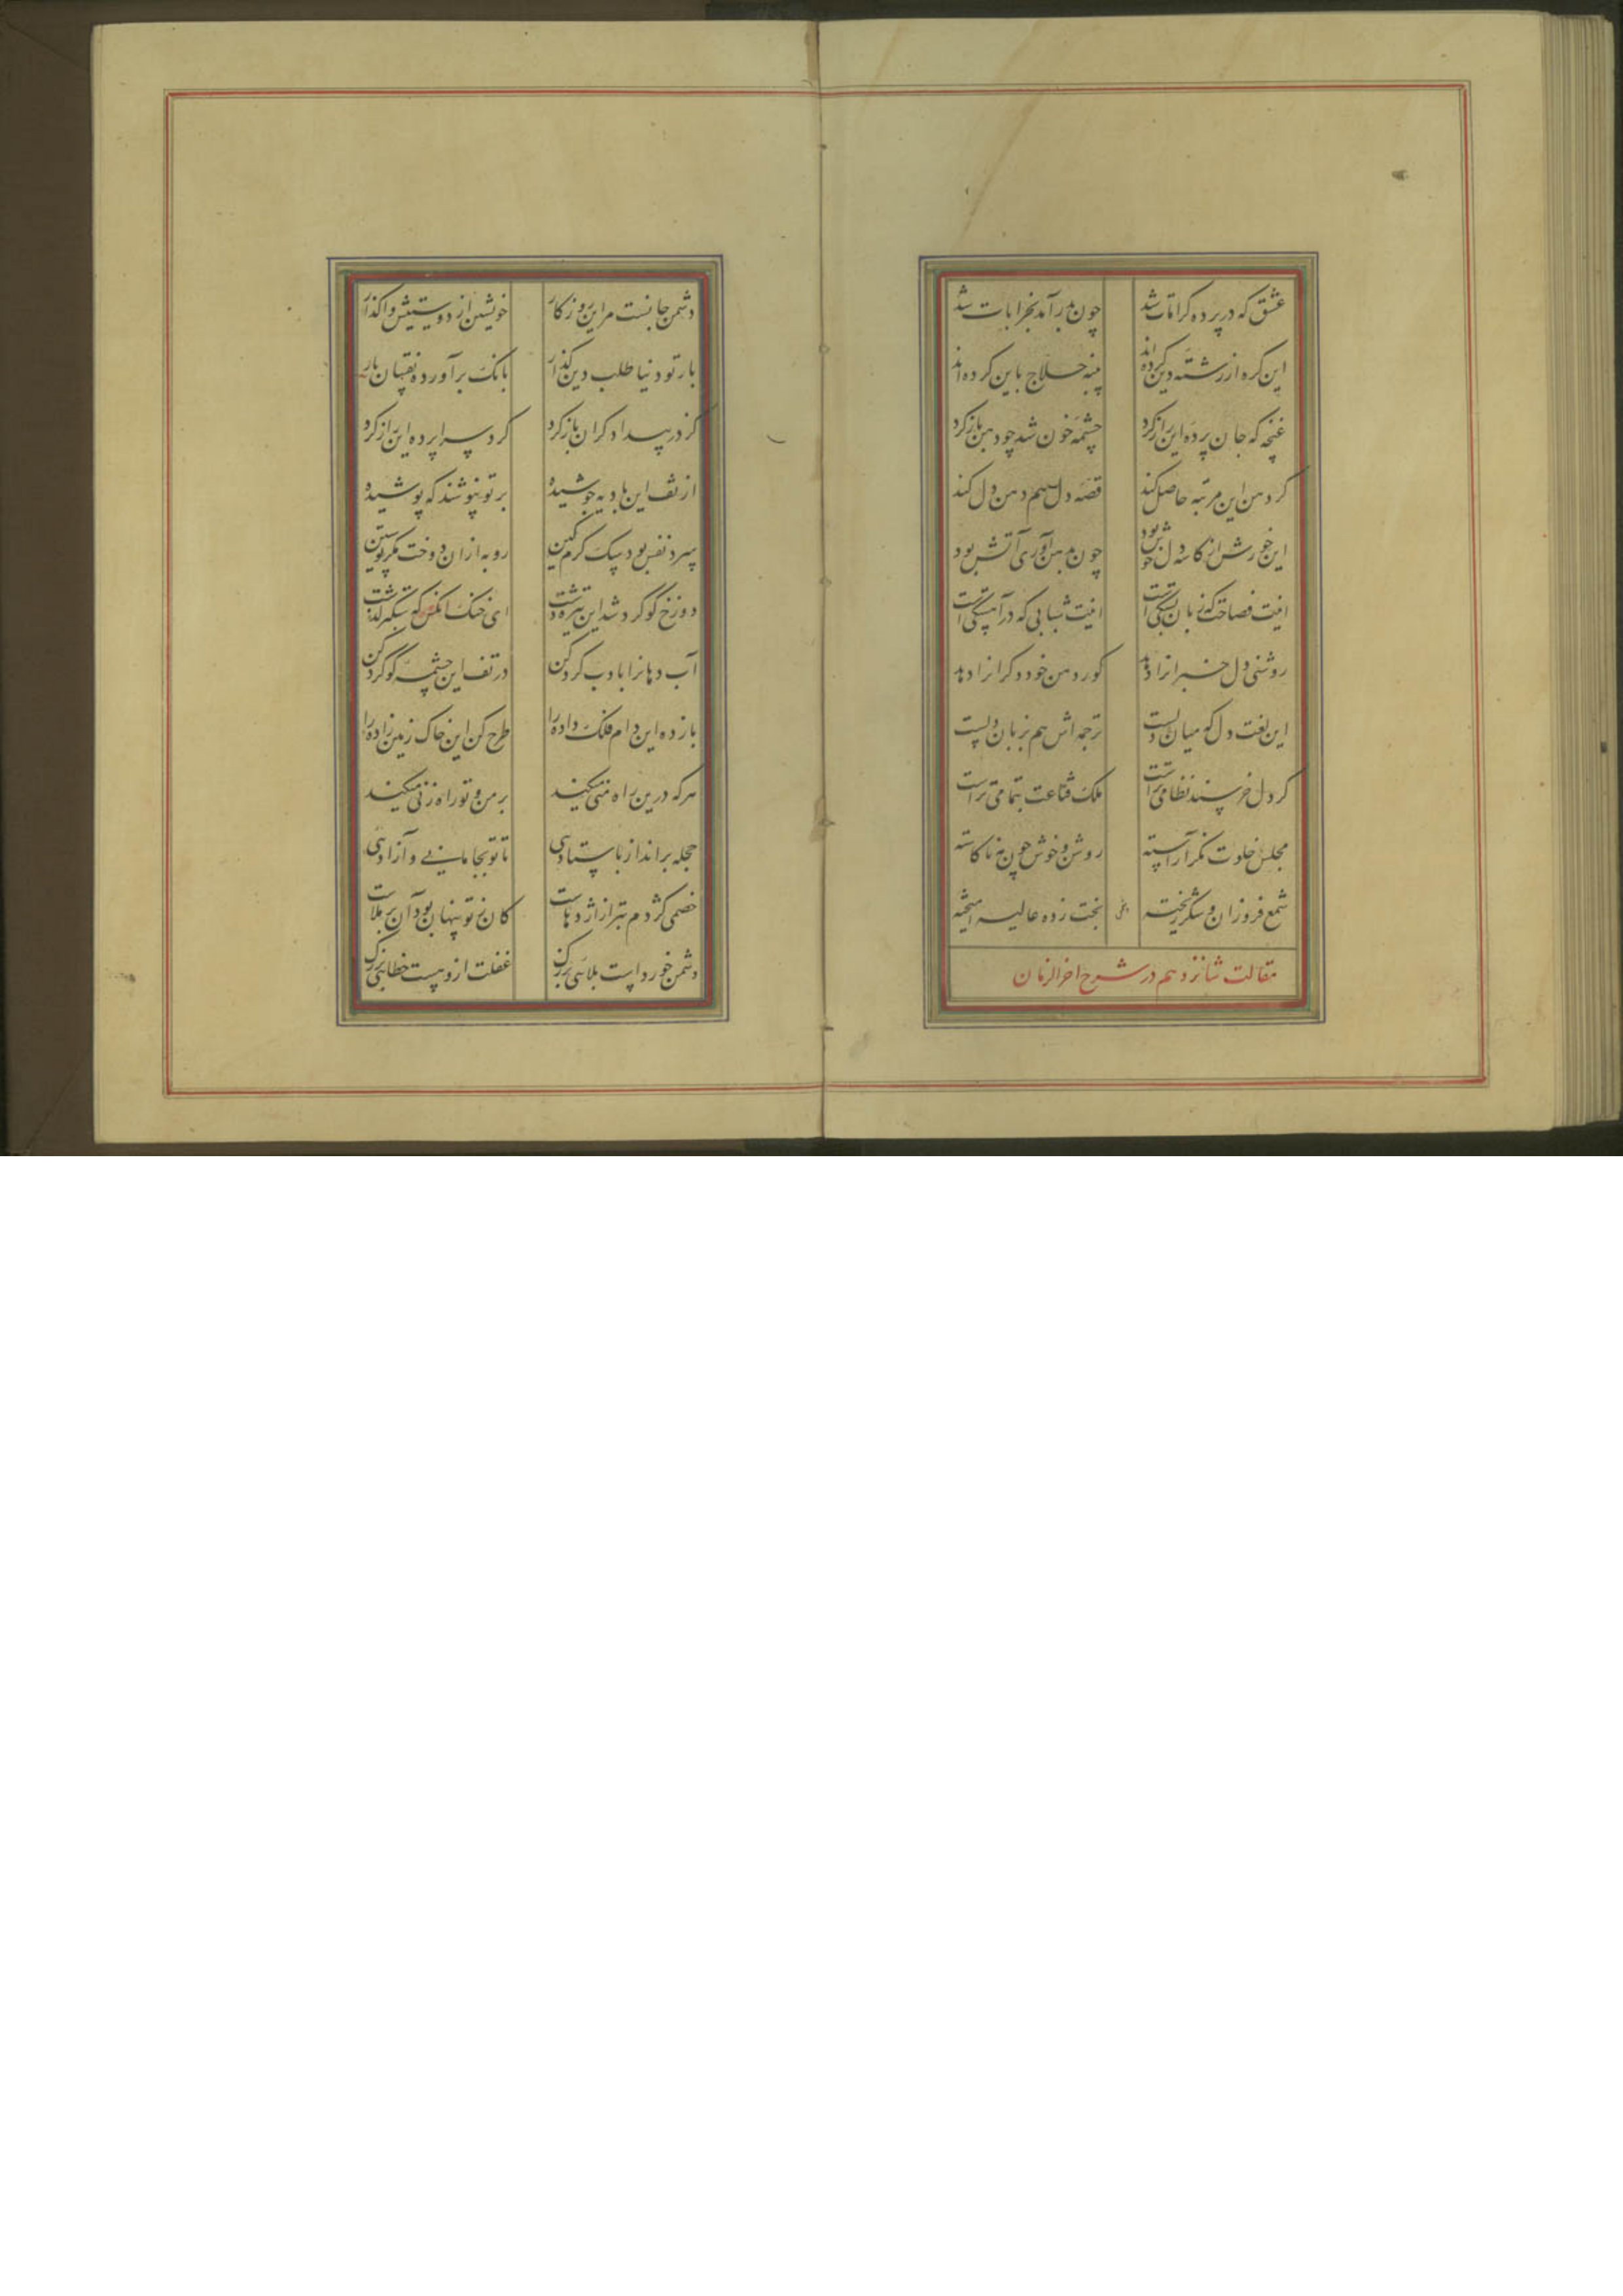 عشق که در پرده کرامات شد چون بدر آمد بخرابات شد
این کره از رشته دین کرده اند پنبه حلاج باین کرده اند
غنچه که جان پرده این راز کرد چشمه خون شد چو دهن باز کرد
کر دهن این مرتبه حاصل کند قصه دل هم دهن دل کند
این خورش از کاسه دل خوش بود چون بدهن آوری آتش بود
اینت فصاحت که زبان بستگی است اینت شتابی که در آهستگی است
روشنی دل خبر انرا دهد کو دهن خود دکرانرا دهد
این لغت دل که میان دلست ترجمه اش هم بزبان دلست
کر دل خرسند نظامی تراست ملک قناعت بتمامی تراست
مجلس خلوت نکر آراسته روشن و خوش چون مه ناکاسته
شمع فروزان و شکر ریخته تخت زده غالیه آمیخته
مقالت شانزدهم در شرح اخرالزمان
دشمن جانست مر این روزکار خویشتن از دوستیش واکذار
بار تو دنیا طلب دین کذار بانک برآورده نقیبان بار
کر در بیداد کران باز کرد کرد سراپرده این راز کرد
از تف این بادیه جوشیده بر تو نپوشند که پوشیده
سرد نفس بود سک کرم کین روبه از ان دوخت مکر پوستین
دوزخ کوکرد شد این تیره دشت ای خنک انکس که سبکتر کذشت
آب دهانرا بادب کرد کن در تف این چشمه کوکرد کن
باز ده این وام فلک داده را طرح کن این خاک زمین زاده را
هر که درین راه منی میکند بر من و تو راه زنی میکند
حجله برانداز باستادی تا تو بجا مانی و آزادی
خصمی کژدم بتر از اژدهاست کان ز تو پنهان بود آن برملاست
دشمن خورد است بلائی بزرک غفلت ازو هست خطائی بزرک